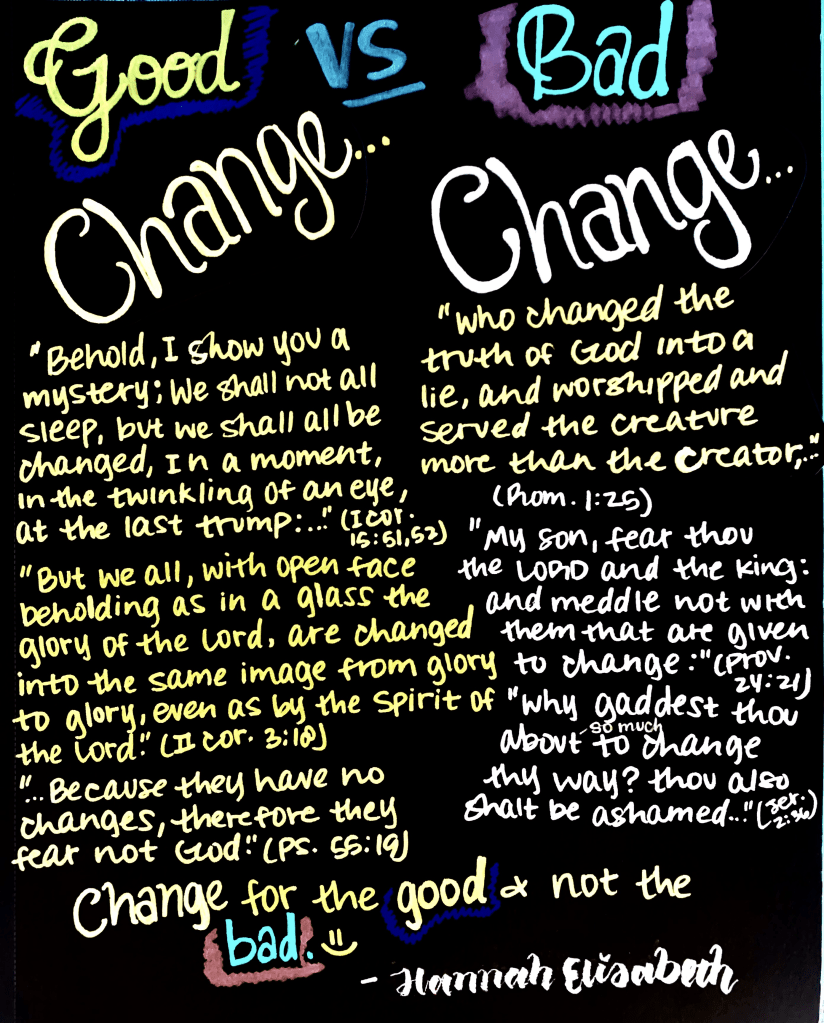 Good vs Bad
Change...
Change...
"Behold, I show you a
mystery; We shall not all
sleep, but we shall all be
changed, In a moment,
in the twinkling of an eye,
at the last trump:..." (I Cor.
15:51,52)
"But we all, with open face
beholding as in a glass the
glory of the Lord, are changed
into the same image from glory
to glory, even as by the Spirit of
the Lord." (II Cor. 3:18)
"...Because they have no
changes, therefore they
fear not God." (Ps. 55:19)
"Who changed the
truth of God into a
lie, and worshipped and
served the creature
more than the Creator,..."
(Rom. 1:25)
"My son, fear thou
the LORD and the king:
and meddle not with
them that are given
to change:" (Prov.
24:21)
"Why gaddest thou
about -so much to change
thy way? thou also
shalt be ashamed..." (Jer.
2:36)
Change for the good & not the
bad.
- Hannah Elisabeth